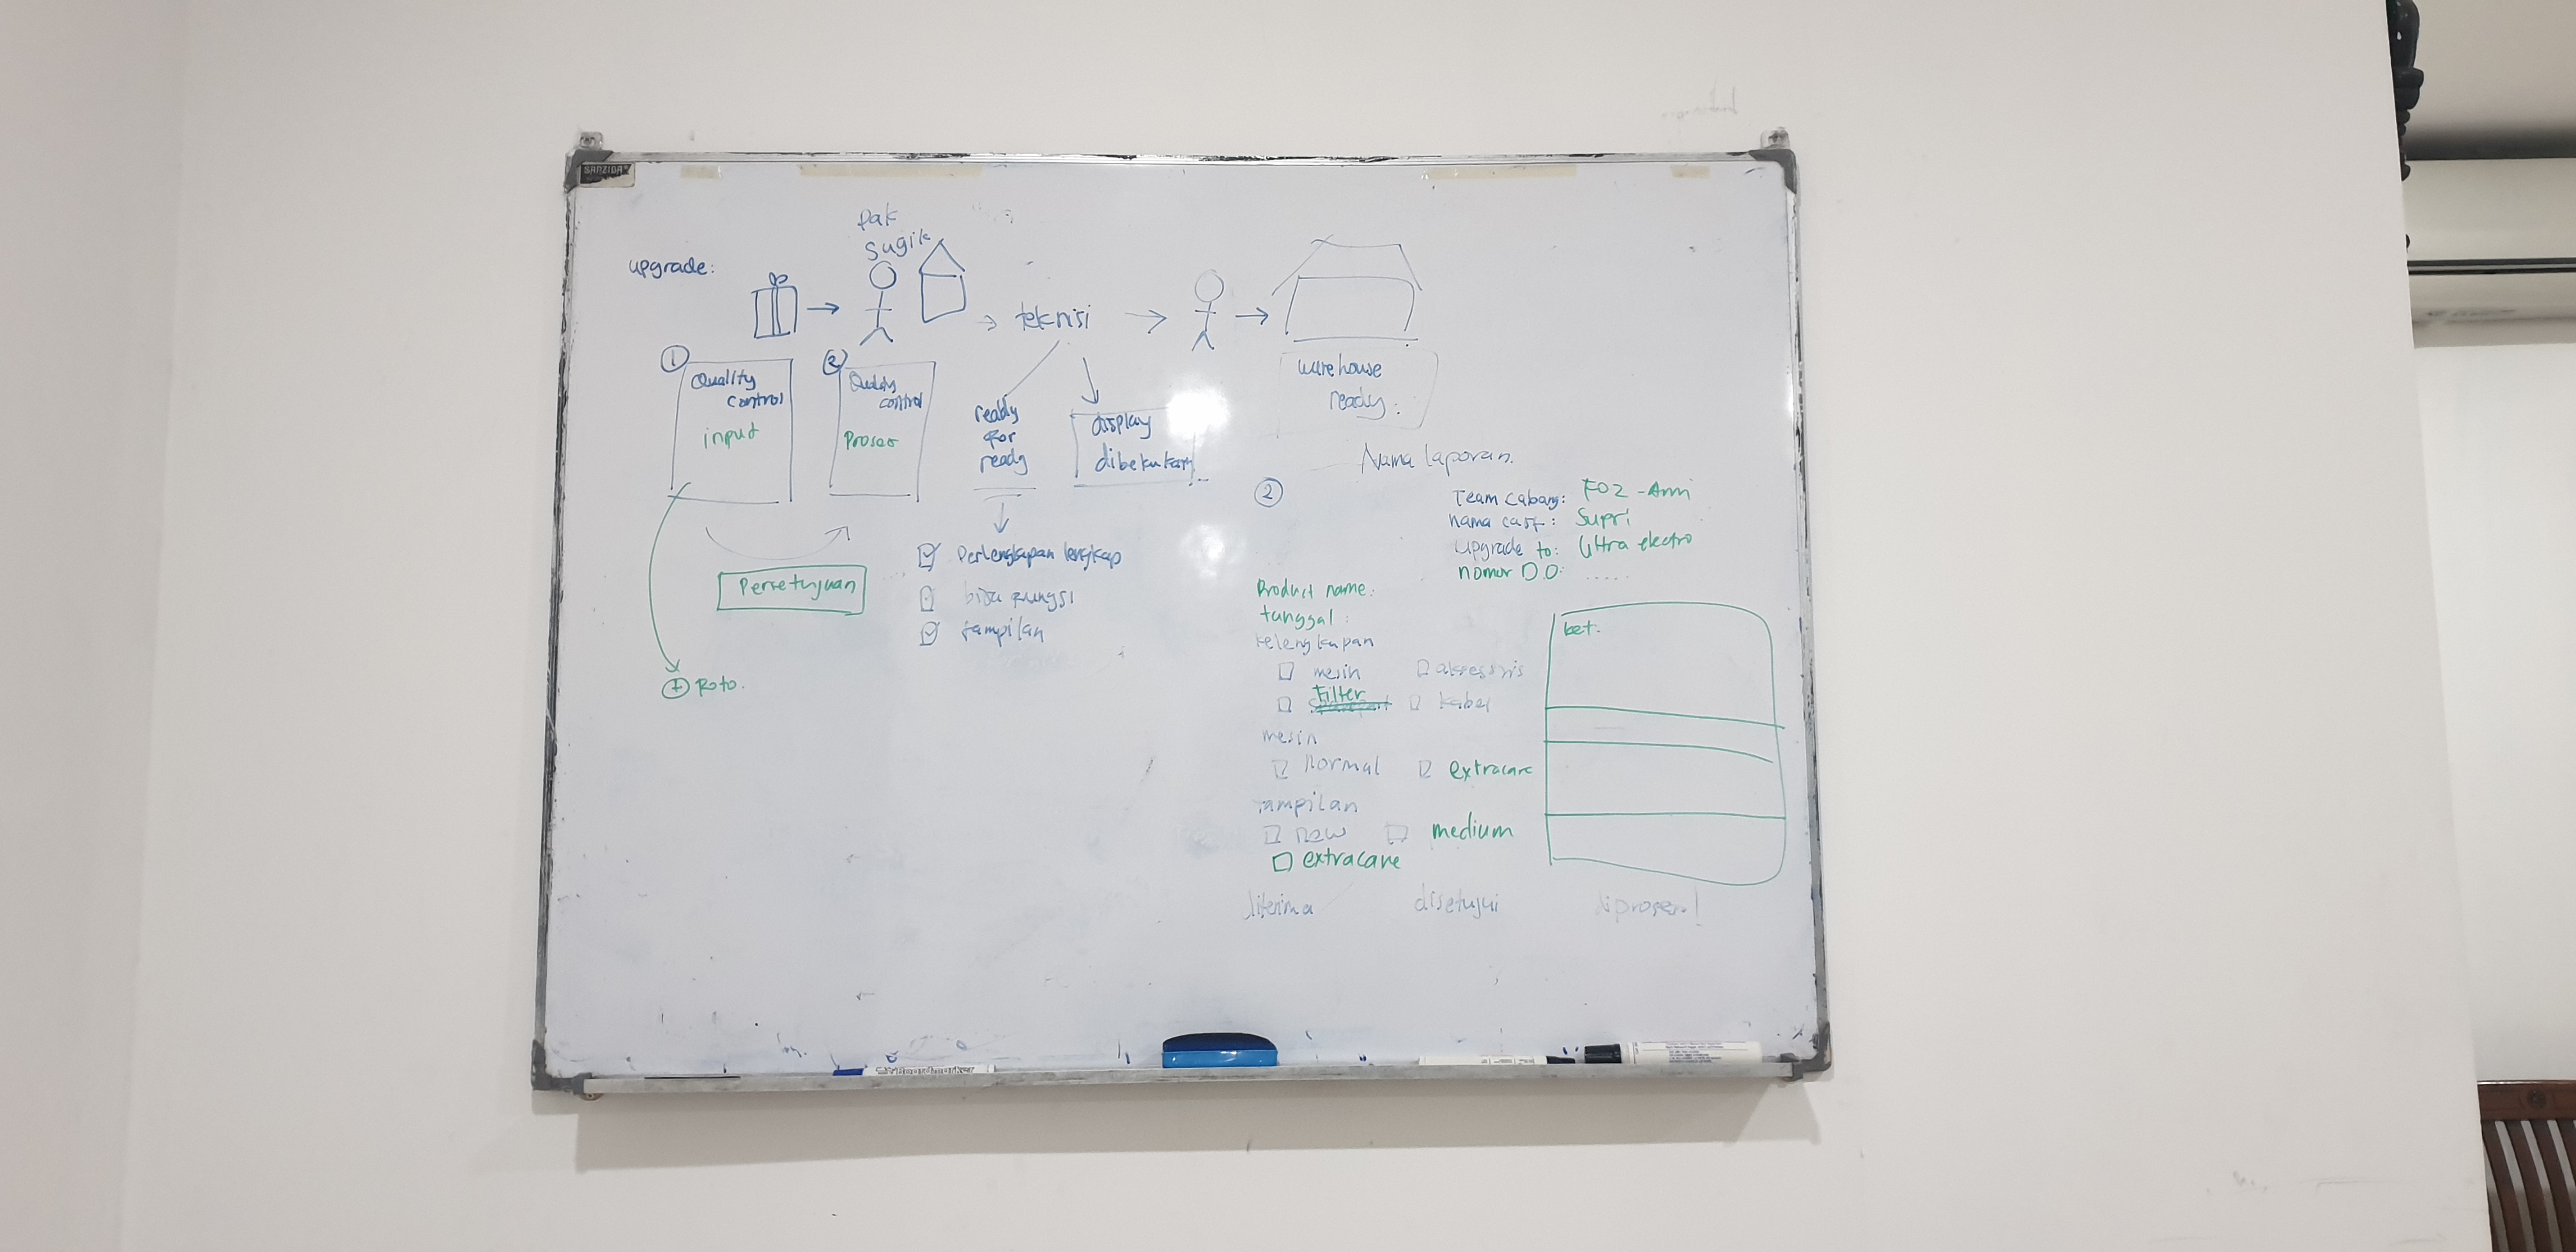 SANZIDA
Pak
Sugik
upgrade:
teknisi
1
Quality
control
input
2
Quality
control
Proses
ready
for
ready
display
dibekukan
warehouse
ready.
Persetujuan
+ Foto.
Perlengkapan lengkap
bisa fungsi
tampilan
Nama laporan.
2
Team Cabang: F02 - Ami
nama cust: Supri
Upgrade to: Ultra electro
nomor D.O: .....
Product name:
tanggal:
kelengkapan
mesin aksessoris
Filter kabel
mesin
Normal extracare
tampilan
new medium
extracare
ket.
diterima disetujui diproses